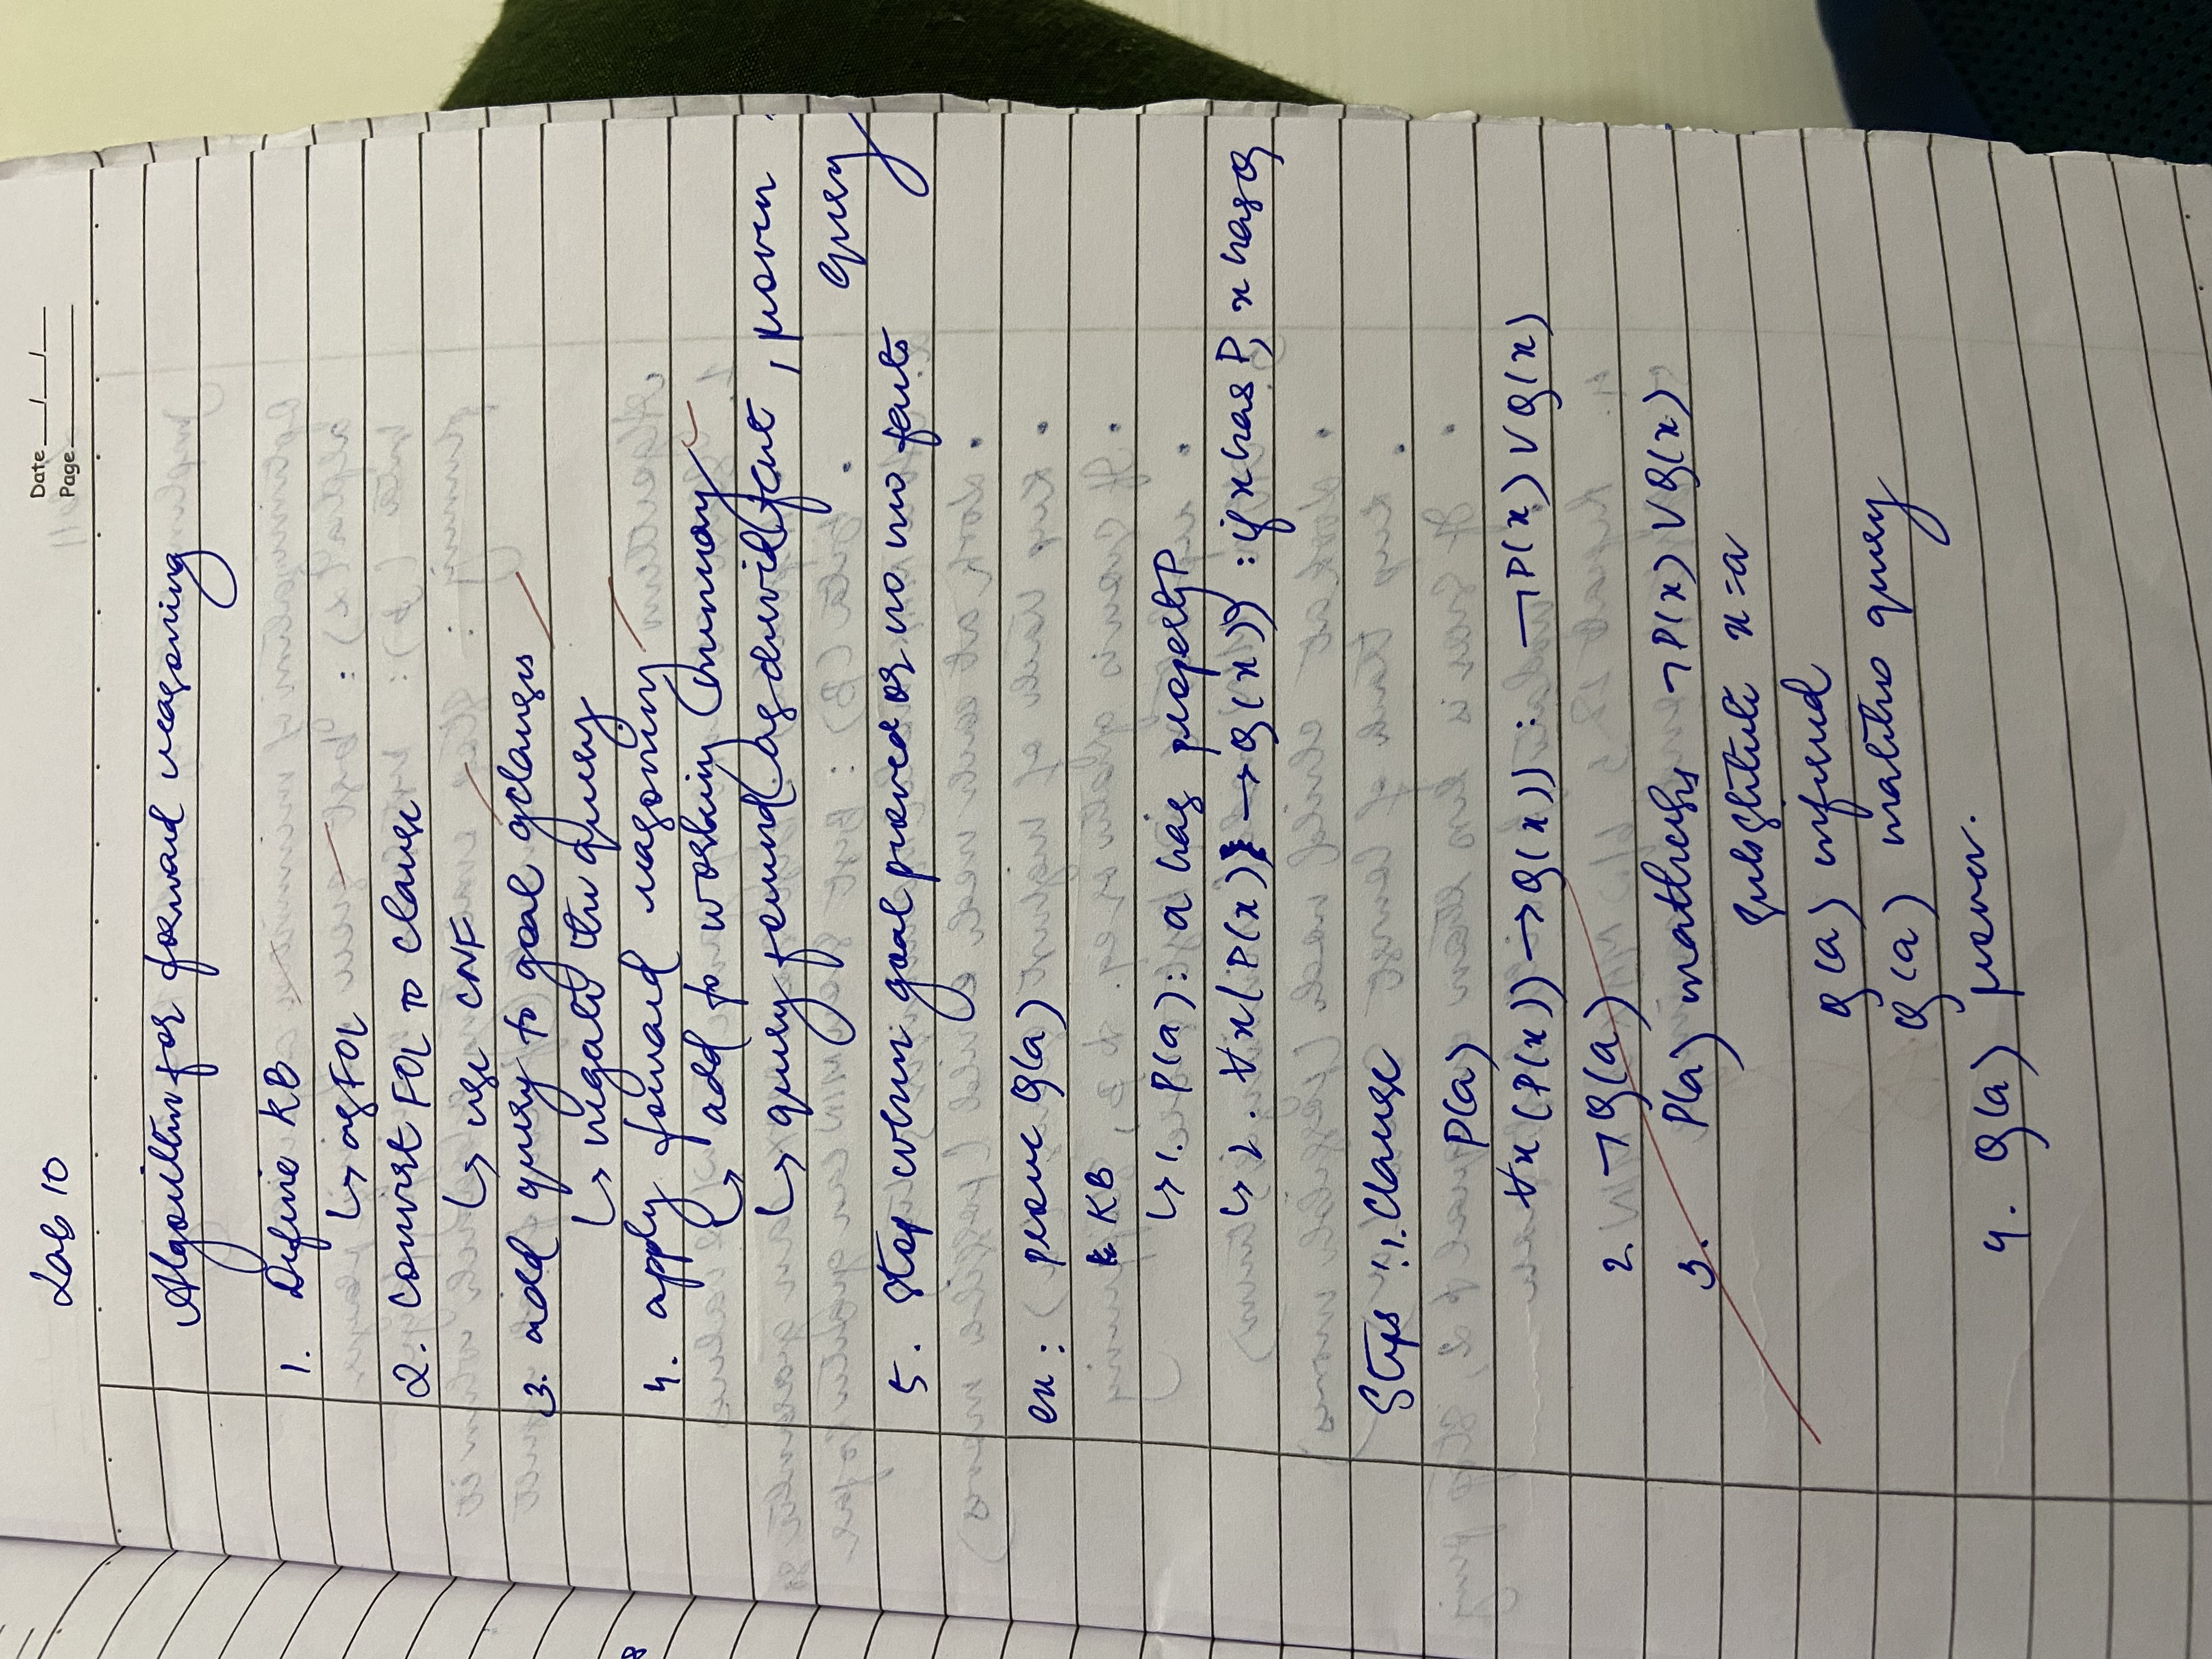 Lab 10
Date __/__/__
Page
Algorithm for forward reasoning
1. Define KB
↳ as FOL
2. Convert FOL to clause
↳ use CNF
3. add query to goal clauses
↳ negate the query
4. apply forward reasoning
↳ add to working memory
↳ query found as derived fact, proven
query
5. Stop when goal proved or no mo facts
ex: prove Q(a)
KB
↳ 1. P(a): a has property P
↳ 2. ∀x(P(x) → Q(x)) : if x has P, x has Q
Steps : 1. Clause
P(a)
∀x (P(x)) → Q(x)) : ¬P(x) ∨ Q(x)
2. ¬Q(a)
3. P(a) matches ¬P(x) ∨ Q(x)
substitute x=a
Q(a) inferred
Q(a) matches query
4. Q(a) proven.